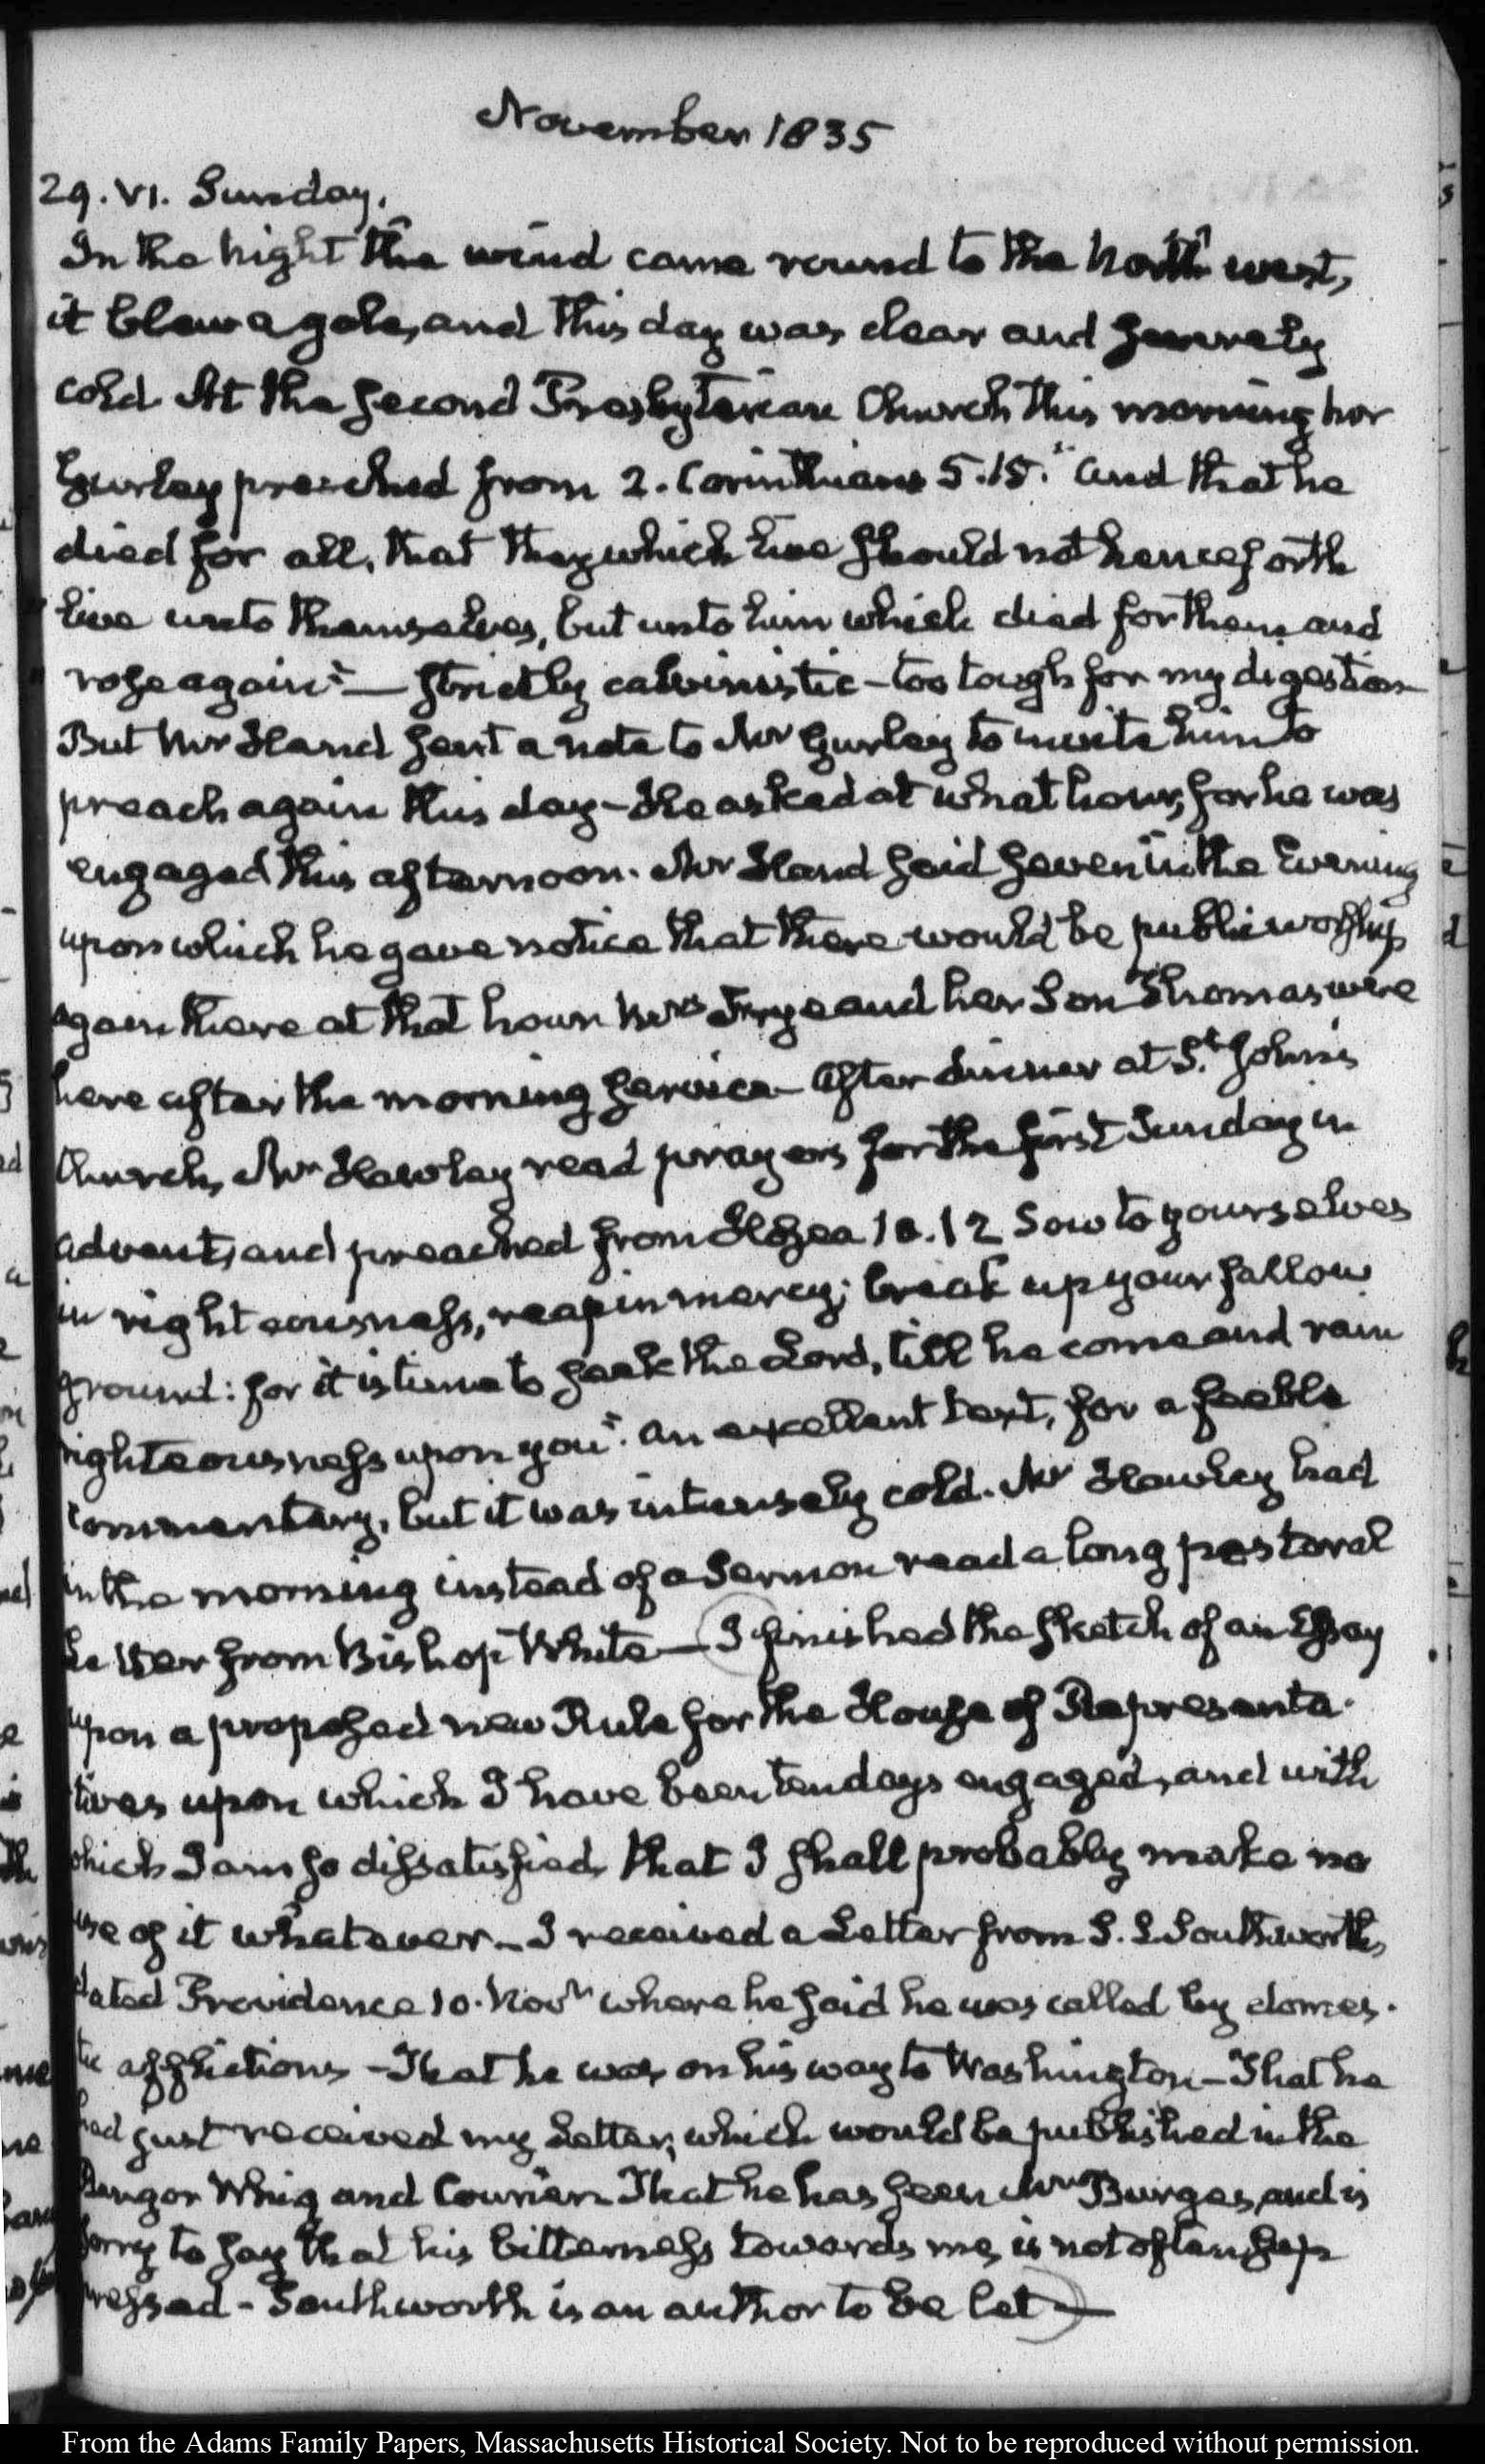 November 1835
29. VI. Sunday.
In the night the wind came round to the north west,
it blew a gale, and this day was clear and severely
cold. At the second Presbyterian Church this morning Mr
Gurley preached from 2. Corinthians 5.15. "And that he
died for all, that they which live should not henceforth
" live unto themselves, but unto him which died for them and
" rose again" — strictly calvinistic — too tough for my digestion
But Mr Hand sent a note to Mr Gurley to invite him to
preach again this day — He asked at what hour, for he was
engaged this afternoon. Mr Hand said seven in the Evening
upon which he gave notice that there would be public worship
again there at that hour Mrs Frye and her Son Thomas were
here after the morning service — After dinner at St. John's
Church, Mr Hawley read prayers for the first Sunday in
advent, and preached from Hosea 10.12 Sow to yourselves
in righteousness, reap in mercy; break up your fallow
ground: for it is time to seek the Lord, till he come and rain
righteousness upon you". An excellent text, for a feeble
commentary, but it was intensely cold. Mr Hawley had
in the morning instead of a Sermon read a long pastoral
Letter from Bishop White — I finished the sketch of an Essay
upon a proposed new Rule for the House of Representa-
tives upon which I have been ten days engaged, and with
which I am so dissatisfied, that I shall probably make no
use of it whatever — I received a Letter from S. L Southworth,
dated Providence 10. Novr where he said he was called by domes-
tic afflictions — That he was on his way to Washington — That he
had just received my Letter, which would be published in the
Bangor Whig and Courier. That he has seen Mr Burges, and is
sorry to say that his bitterness towards me, is not often sup
pressed — Southworth is an author to be let —
From the Adams Family Papers, Massachusetts Historical Society. Not to be reproduced without permission.